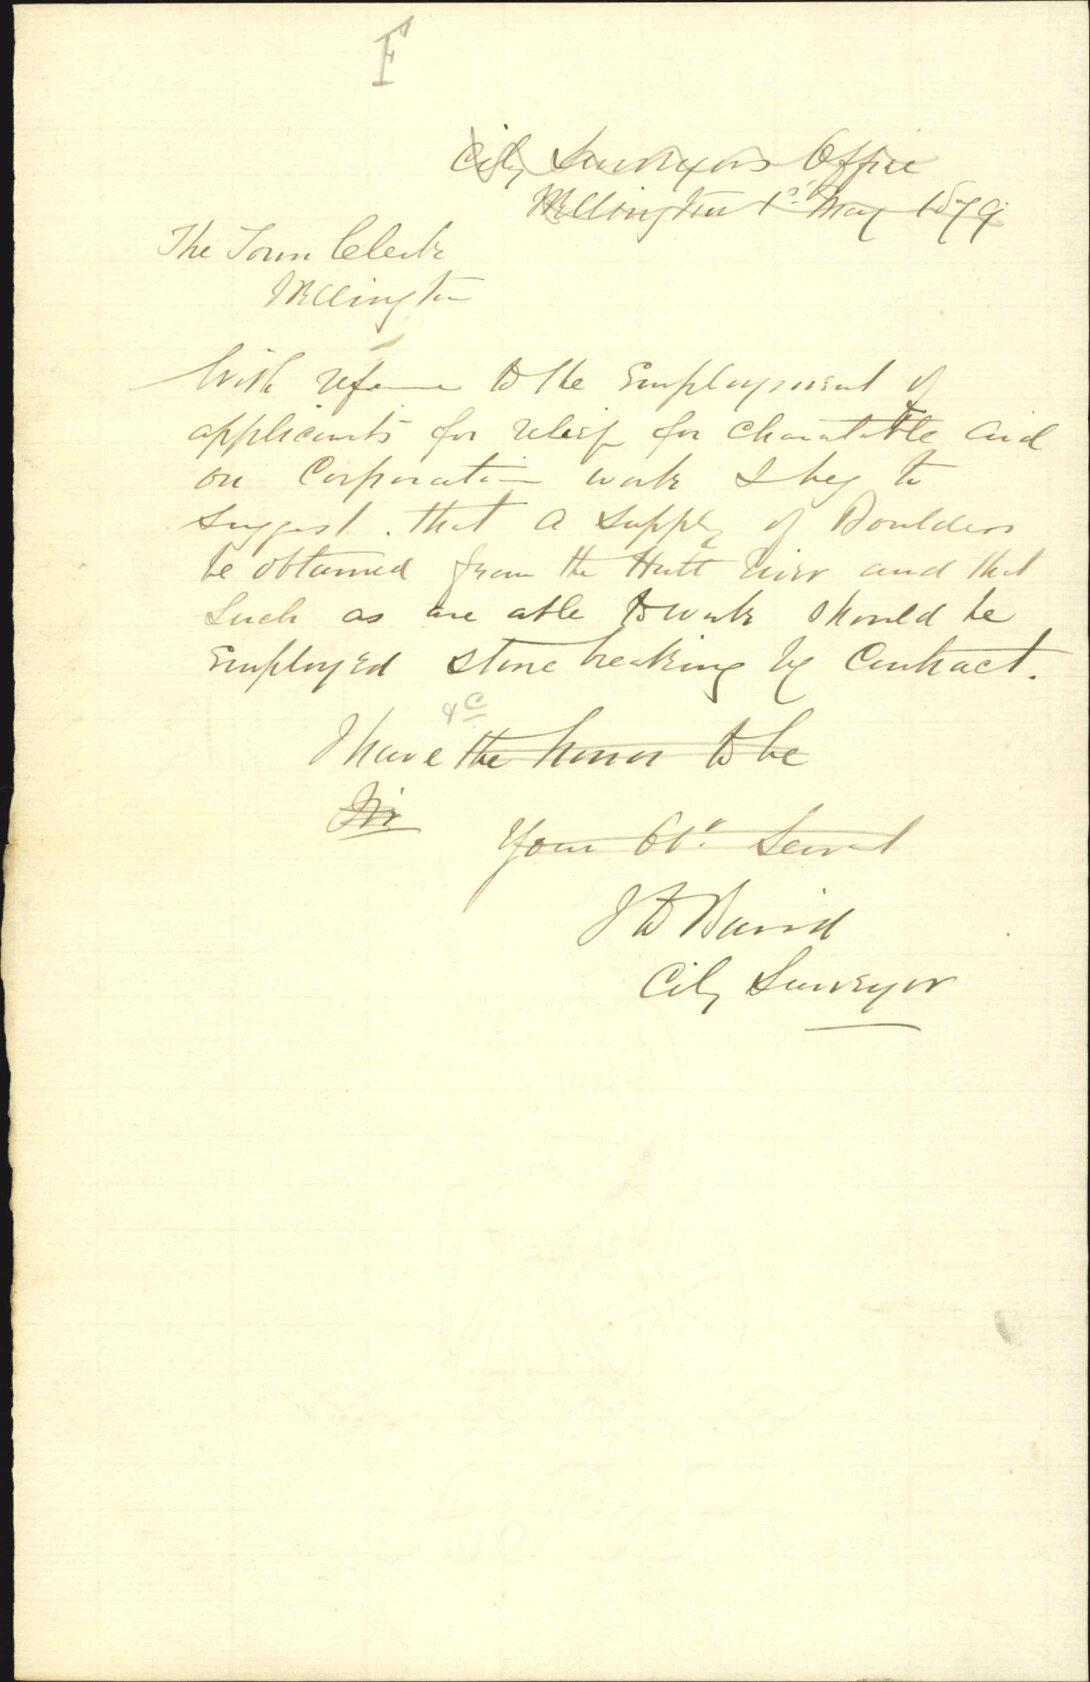 F
City Surveyors Office
Wellington 1st May 1879
The Town Clerk
Wellington
With reference to the Employment of
applicants for relief for charitable aid
on Corporation work I beg to
suggest that a supply of Boulders
be obtained from the Hutt River and that
such as are able to work should be
Employed stone breaking by Contract.
&c
I have the honor to be
Sir
Your Obt Servant
J D Baird
City Surveyor